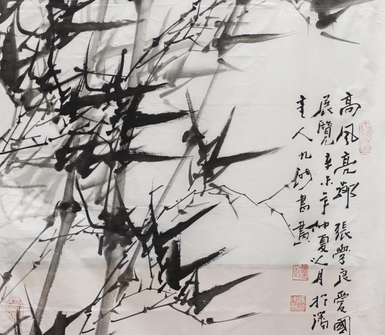 高風亮節 張學良愛國
展覽辛未年仲夏之月於潘
主人九 書畫